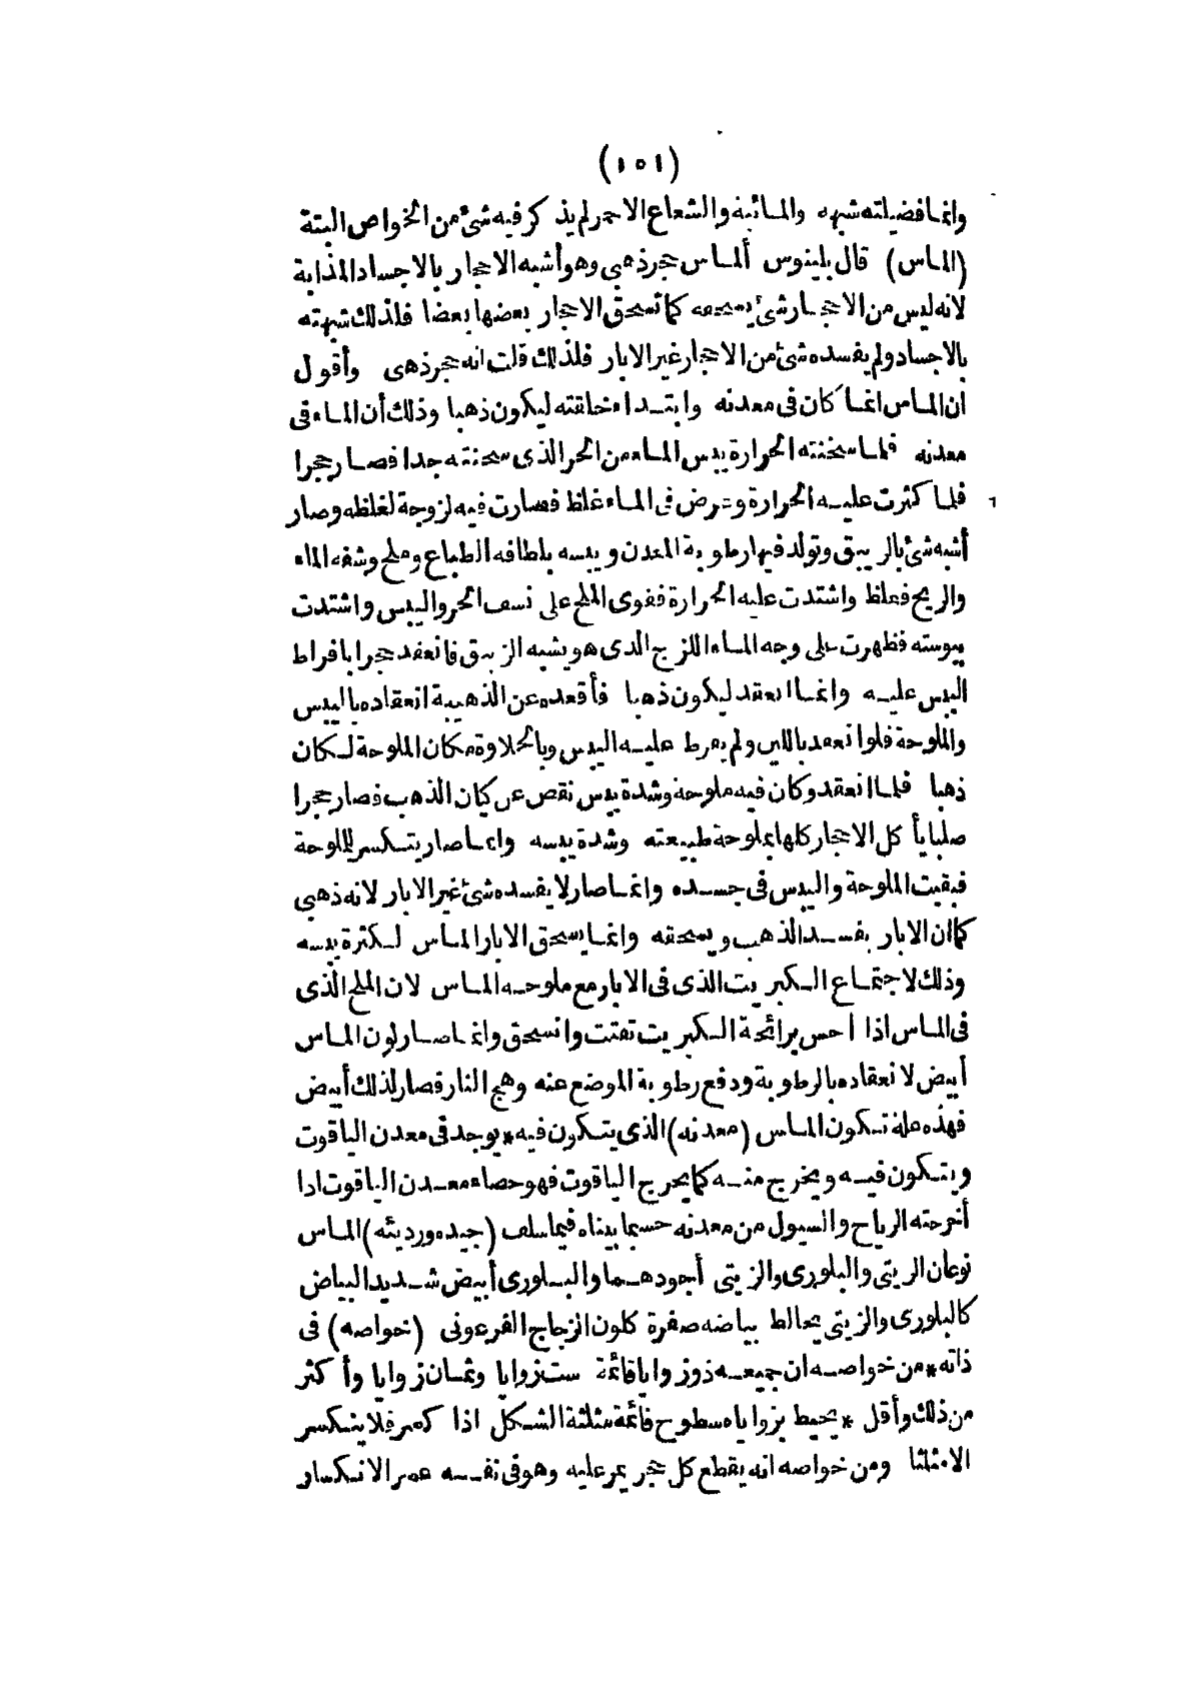 (١٥١)
وانما فضيلته شبهه والمائية والشعاع الاحمر لم يذكر فيه شئ من الخواص البتة
(الماس) قال بلينوس ألماس حجر ذهبي وهو أشبه الاحجار بالاجساد المذابة
لانه ليس من الاحجار شئ يسحقه كما تسحق الاحجار بعضها بعضا فلذلك شبهته
بالاجساد ولم يفسده شئ من الاحجار غير الابار فلذلك قلت انه حجر ذهبى وأقول
ان الماس انما كان فى معدنه وابتداء خلقته ليكون ذهبا وذلك أن الماء فى
معدنه فلما سخنته الحرارة يبس الماء من الحر الذى سخنته جدا فصار حجرا
فلما كثرت عليه الحرارة وعرض فى الماء غلظ فصارت فيه لزوجة لغلظه وصار
أشبه شئ بالزيبق وتولد فيها رطوبة المعدن ويبسه بلطافه الطباع وملح وشفه الماء
والريح فغلظ واشتدت عليه الحرارة فقوى الملح على نسف الحر واليبس واشتدت
يبوسته فظهرت على وجه الماء اللزج الذى هو يشبه الزيبق فانعقد حجرا بافراط
اليبس عليه وانما انعقد ليكون ذهبا فأقعده عن الذهبية انعقاده باليبس
والملوحة فلو انعقد باللين ولم يفرط عليه اليبس وبالحلاوة مكان الملوحة لكان
ذهبا فلما انعقد وكان فيه ملوحة وشدة يبس نقص عن كيان الذهب فصار حجرا
صلبا يأكل الاحجار كلها بملوحة طبيعته وشدة يبسه وانما صار يتكسر للملوحة
فبقيت الملوحة واليبس فى جسده وانما صار لا يفسده شئ غير الابار لانه ذهبى
كما ان الابار يفسد الذهب ويسحقه وانما يسحق الابار الماس لكثرة يبسه
وذلك لاجتماع الكبريت الذى فى الابار مع ملوحه الماس لان الملح الذى
فى الماس اذا احس برائحة الكبريت تفتت وانسحق وانما صار لون الماس
أبيض لانعقاده بالرطوبة ودفع رطوبة الموضع عنه وهج النار فصار لذلك أبيض
فهذه علة تكون الماس (معدنه) الذى يتكون فيه * يوجد فى معدن الياقوت
ويتكون فيه ويخرج منه كما يخرج الياقوت فهو حصاء معدن الياقوت اذا
أخرجته الرياح والسيول من معدنه حسبما بيناه فيما سلف (جيده ورديئه) الماس
نوعان الزيتى والبلورى والزيتى أجودهما والبلورى أبيض شديد البياض
كالبلورى والزيتى يخالط بياضه صفرة كلون الزجاج الفرعونى (خواصه) فى
ذاته * من خواصه ان جميعه ذو زوايا قائمة ست زوايا وثمان زوايا وأكثر
من ذلك وأقل * يحيط بزواياه سطوح قائمة مثلثة الشكل اذا كسر فلا يتكسر
الامثلثا ومن خواصه انه يقطع كل حجر يمر عليه وهو فى نفسه عسر الانكسار